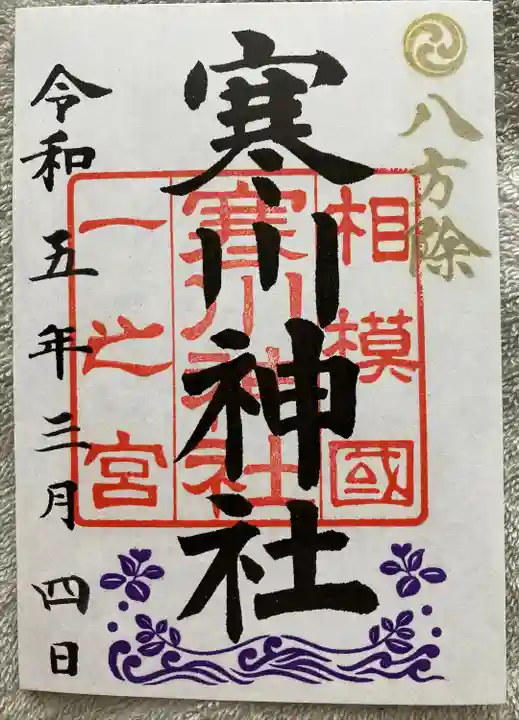 八方除
相模國
寒川神社
寒川神社
一之宮
令和五年三月四日